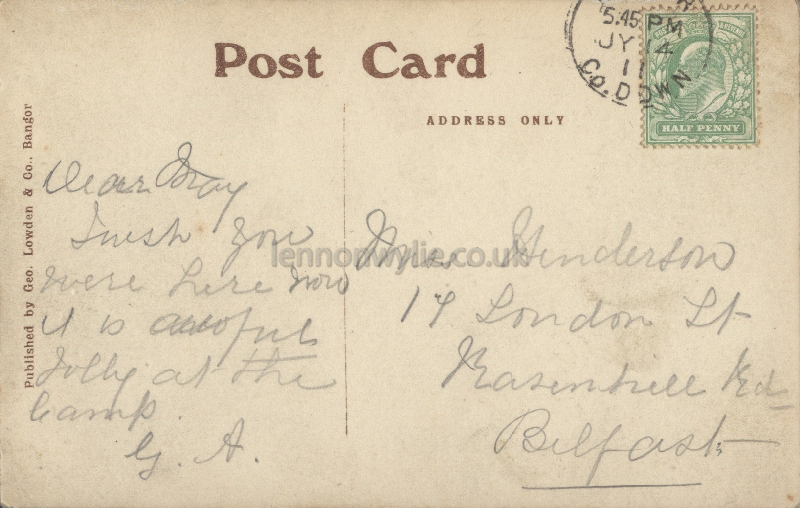 Post Card
ADDRESS ONLY
5.45 PM
JY 14
11
Co. DOWN
HALF PENNY
Published by Geo. Lowden & Co., Bangor
Dear May
I wish you
were here now
it is awful
Jolly at the
Camp.
G. A.
Miss Henderson
17 London St
Ravenhill Rd
Belfast
lennonwylie.co.uk